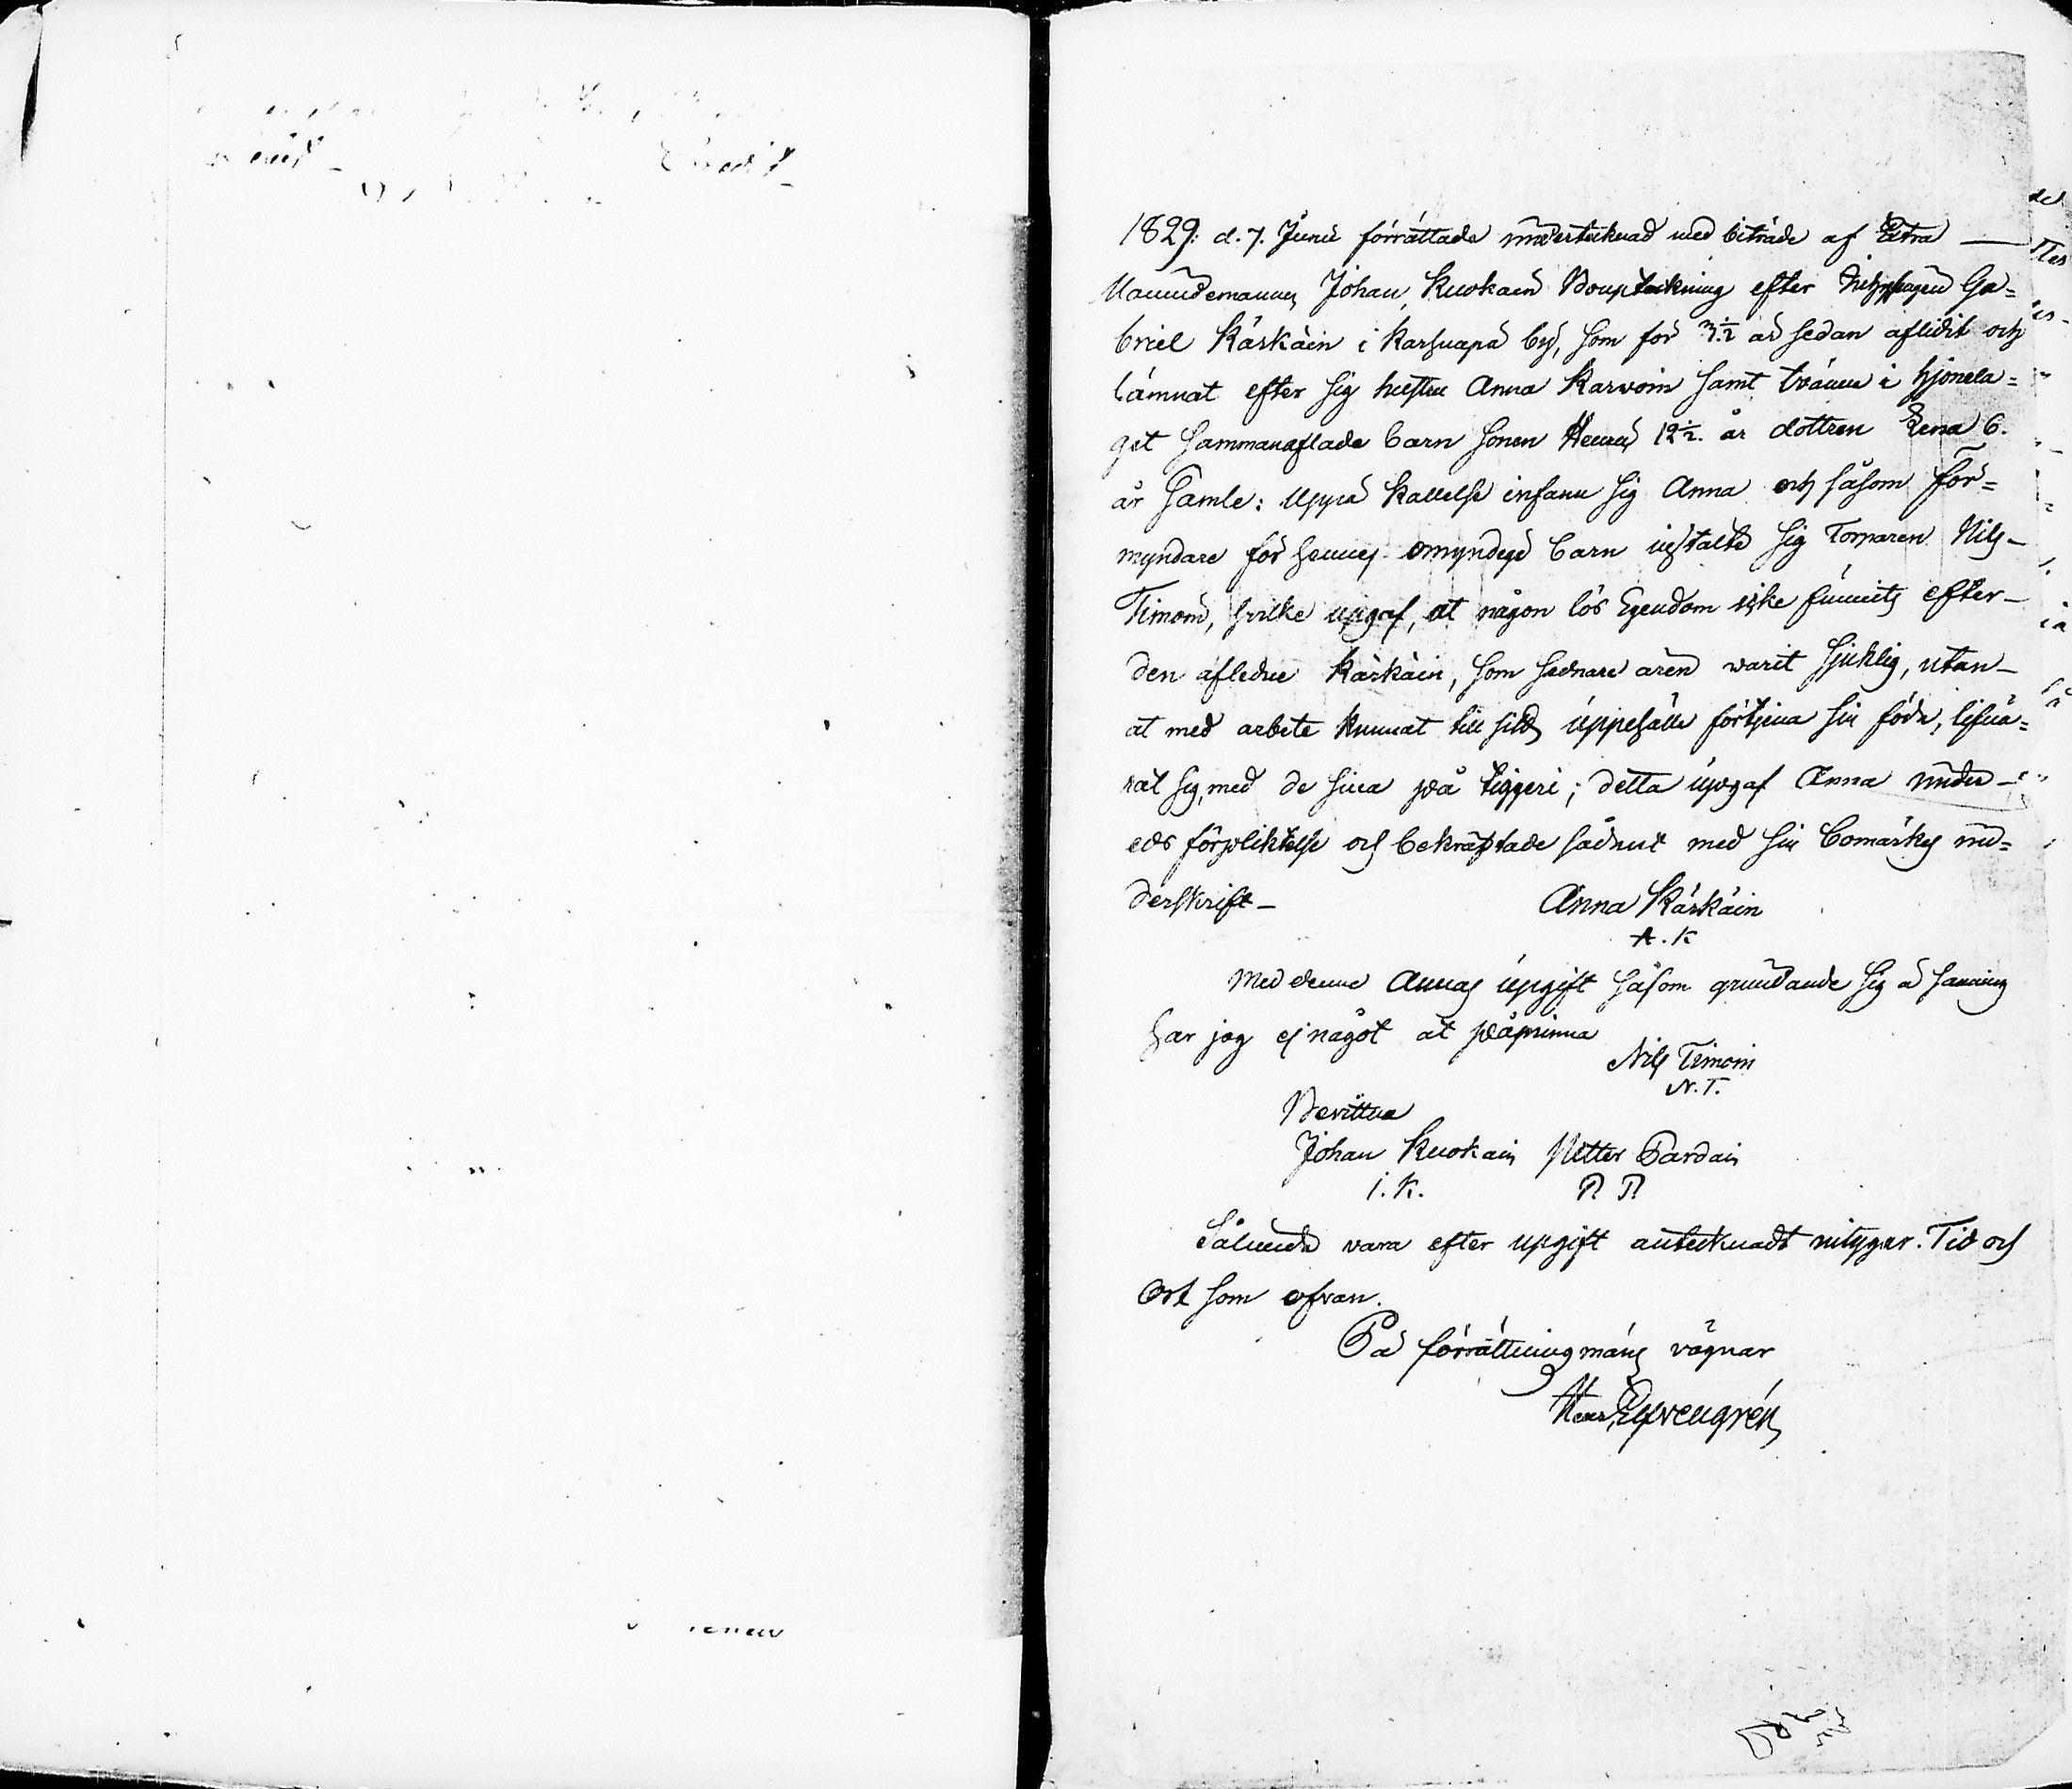 1829: d. 7. Junii förrättade undertecknad med biträde af Extra —
Nämndemannen Johan Kuokain Bouptekning efter Inhyshagen Ga=
briel Käskäin i Karsuapä by, som för 3 1/2 år sedan aflidit och
lämnat efter sig hustru Anna Karwoin samt tvänne i hjonela=
get sammanaflade barn sonen Henric 12 1/2 år dottren Lena 6.
år Gamle: Uppå kallelse infann sig Anna och såsom för=
myndare för hennes omyndige barn instälte sig Torparen Nils –
Timoin, hvilke upgaf, at någon lös Egendom icke funnits efter –
den aflidne Käskäin, som sednare åren warit sjuklig, utan –
at med arbete kunnat till sitt uppehälle förtjena sin föda, lifnä=
rat sig, med de sina på tiggeri; detta upgaf Anna under –
eds förpliktelse och bekräftade sådant med sin bomärkes un=
derskrift –
Anna Käskäin
A. K
Med denne Annas upgift såsom grundande sig å sanning
har jag ej något at påminna
Nils Timoin
N. T.
Bevittna
Johan Kuokain Petter Pardain
I. K. P. P.
Sålunda vara efter upgift antecknadt intygar. Tid och
Ort som ofvan.
På förrättningsmäns vägnar